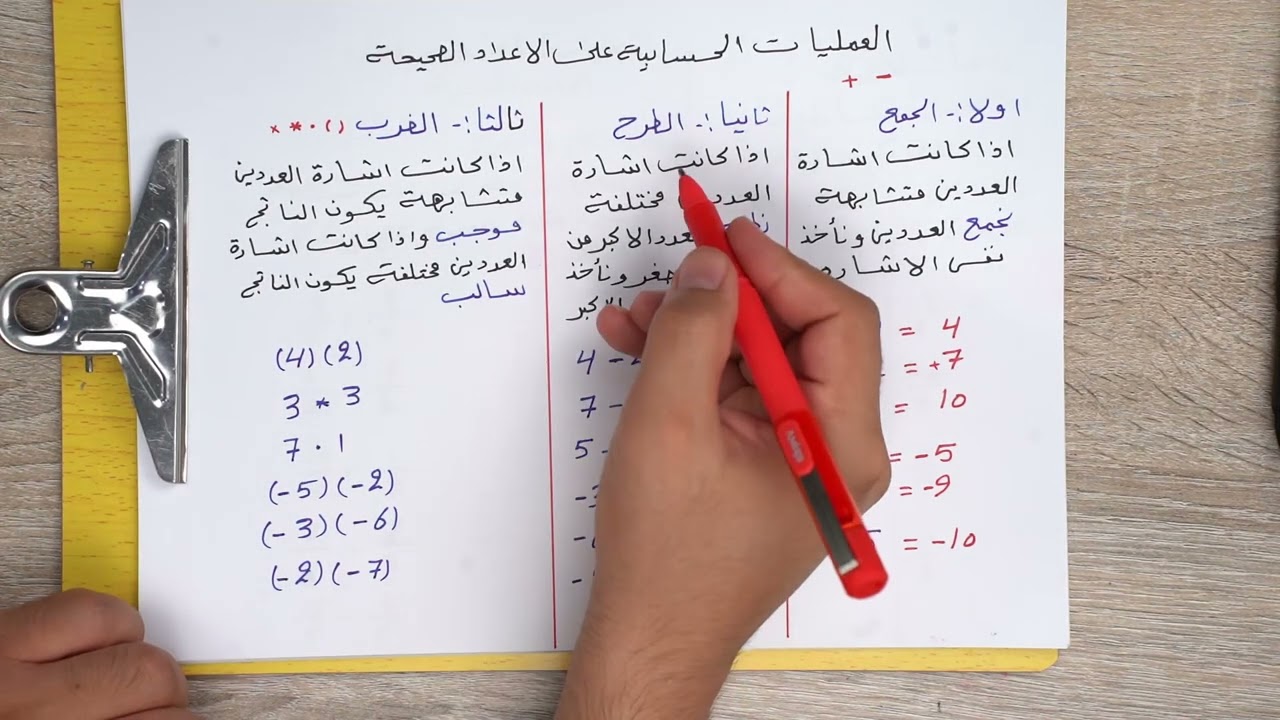 العمليات الحسابية على الاعداد الصحيحة
+ -
اولا:- الجمع
اذا كانت اشارة
العددين متشابهة
نجمع العددين ونأخذ
نفس الاشاره
= 4
= +7
= 10
= -5
= -9
= -10
ثانيا:- الطرح
اذا كانت اشارة
مختلفة
العدد الاكبر من
ونأخذ
الاكبر
4 -
7 -
5 -
ثالثا:- الضرب × * · ( )
اذا كانت اشارة العددين
متشابهة يكون الناتج
موجب واذا كانت اشارة
العددين مختلفة يكون الناتج
سالب
(4)(2)
3 * 3
7 · 1
(-5)(-2)
(-3)(-6)
(-2)(-7)